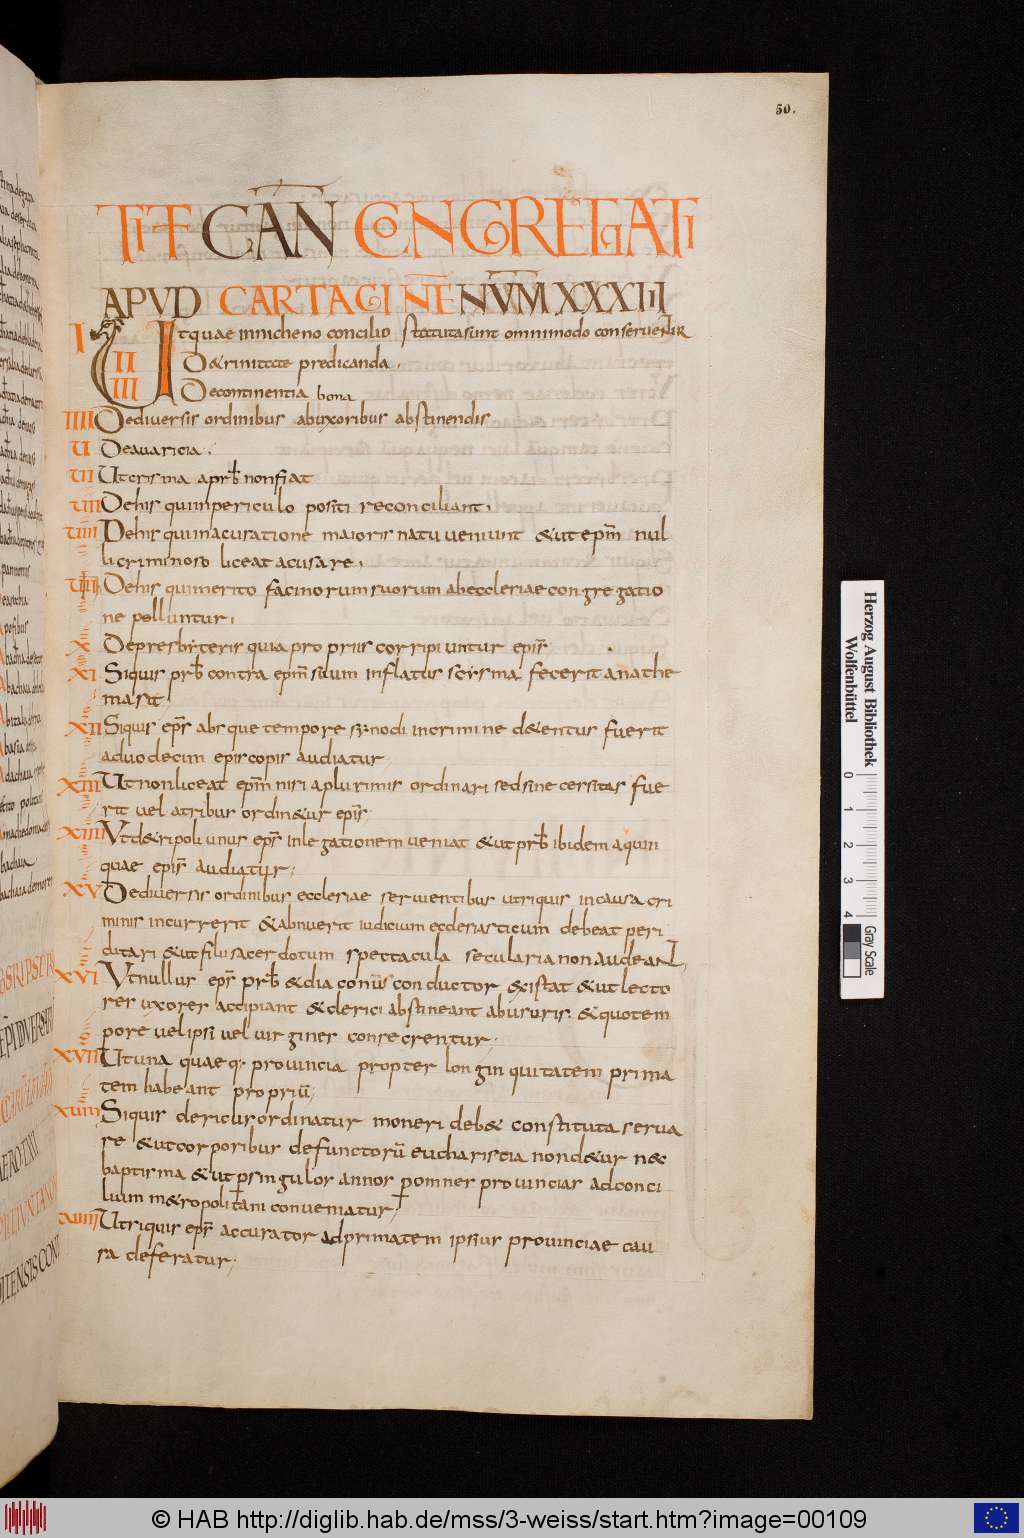 50.
TIT CAN CONGREGATI
APUD CARTAGINE NUM XXXIII
I Ut quae in nicheno concilio statuta sunt omnimodo conserventur
II De trinitate predicanda.
III De continentia bona
IIII De diversis ordinibus ab uxoribus abstinendis
VI De avaricia.
VII Ut crisma a prb non fiat
VIII De his qui in periculo positi reconciliant.
VIIII De his qui in acusatione maioris natu veniunt & ut epm nul
li criminoso liceat acusare.
VIIII De his qui merito facinorum suorum ab ecclesiae congregatio
ne polluntur.
X De presbiteris qui a propriis corripiuntur episˉ
XI Si quis prb contra epm suum inflatus scisma fecerit anathe
ma sit
XII Si quis eps absque tempore synodi in crimine d&entus fuerit
a duodecim episcopis audiatur
XIII Ut non liceat epm nisi a plurimis ordinari sed si necessitas fue
rit vel a tribus ordin&ur epis
XIIII Ut d& ripoli unus eps in legationem veniat & ut prb ibidem a quin
quae epis audiatur;
XV De diversis ordinibus ecclesiae servientibus ut si quis in causa cri
minis incurrerit & abnuerit iudicium ecclesiasticum debeat peri
ditari & ut filii sacerdotum spectacula secularia non audeant
XVI Ut nullus eps prb & diaconus conductor existat & ut lecto
res uxores accipiant & clerici abstineant ab usuris. & quo tem
pore vel ipsi vel virgines consecrentur;
XVII Ut una quaeq; provincia propter longinquitatem prima
tem habeant propriu;
XVIII Si quis clericus ordinatur moneri deb& constituta serva
re & ut corporibus defunctoru eucharistia non d&ur n&
baptisma & ut p singulos annos p omnes provincias ad conci
lium m&ropolitani conveniatur;
XVIIII Ut si quis eps accusator ad primatem ipsius provinciae cau
sa deferatur;
Herzog August Bibliothek
Wolfenbüttel
0 1 2 3 4
Gray Scale
© HAB http://diglib.hab.de/mss/3-weiss/start.htm?image=00109